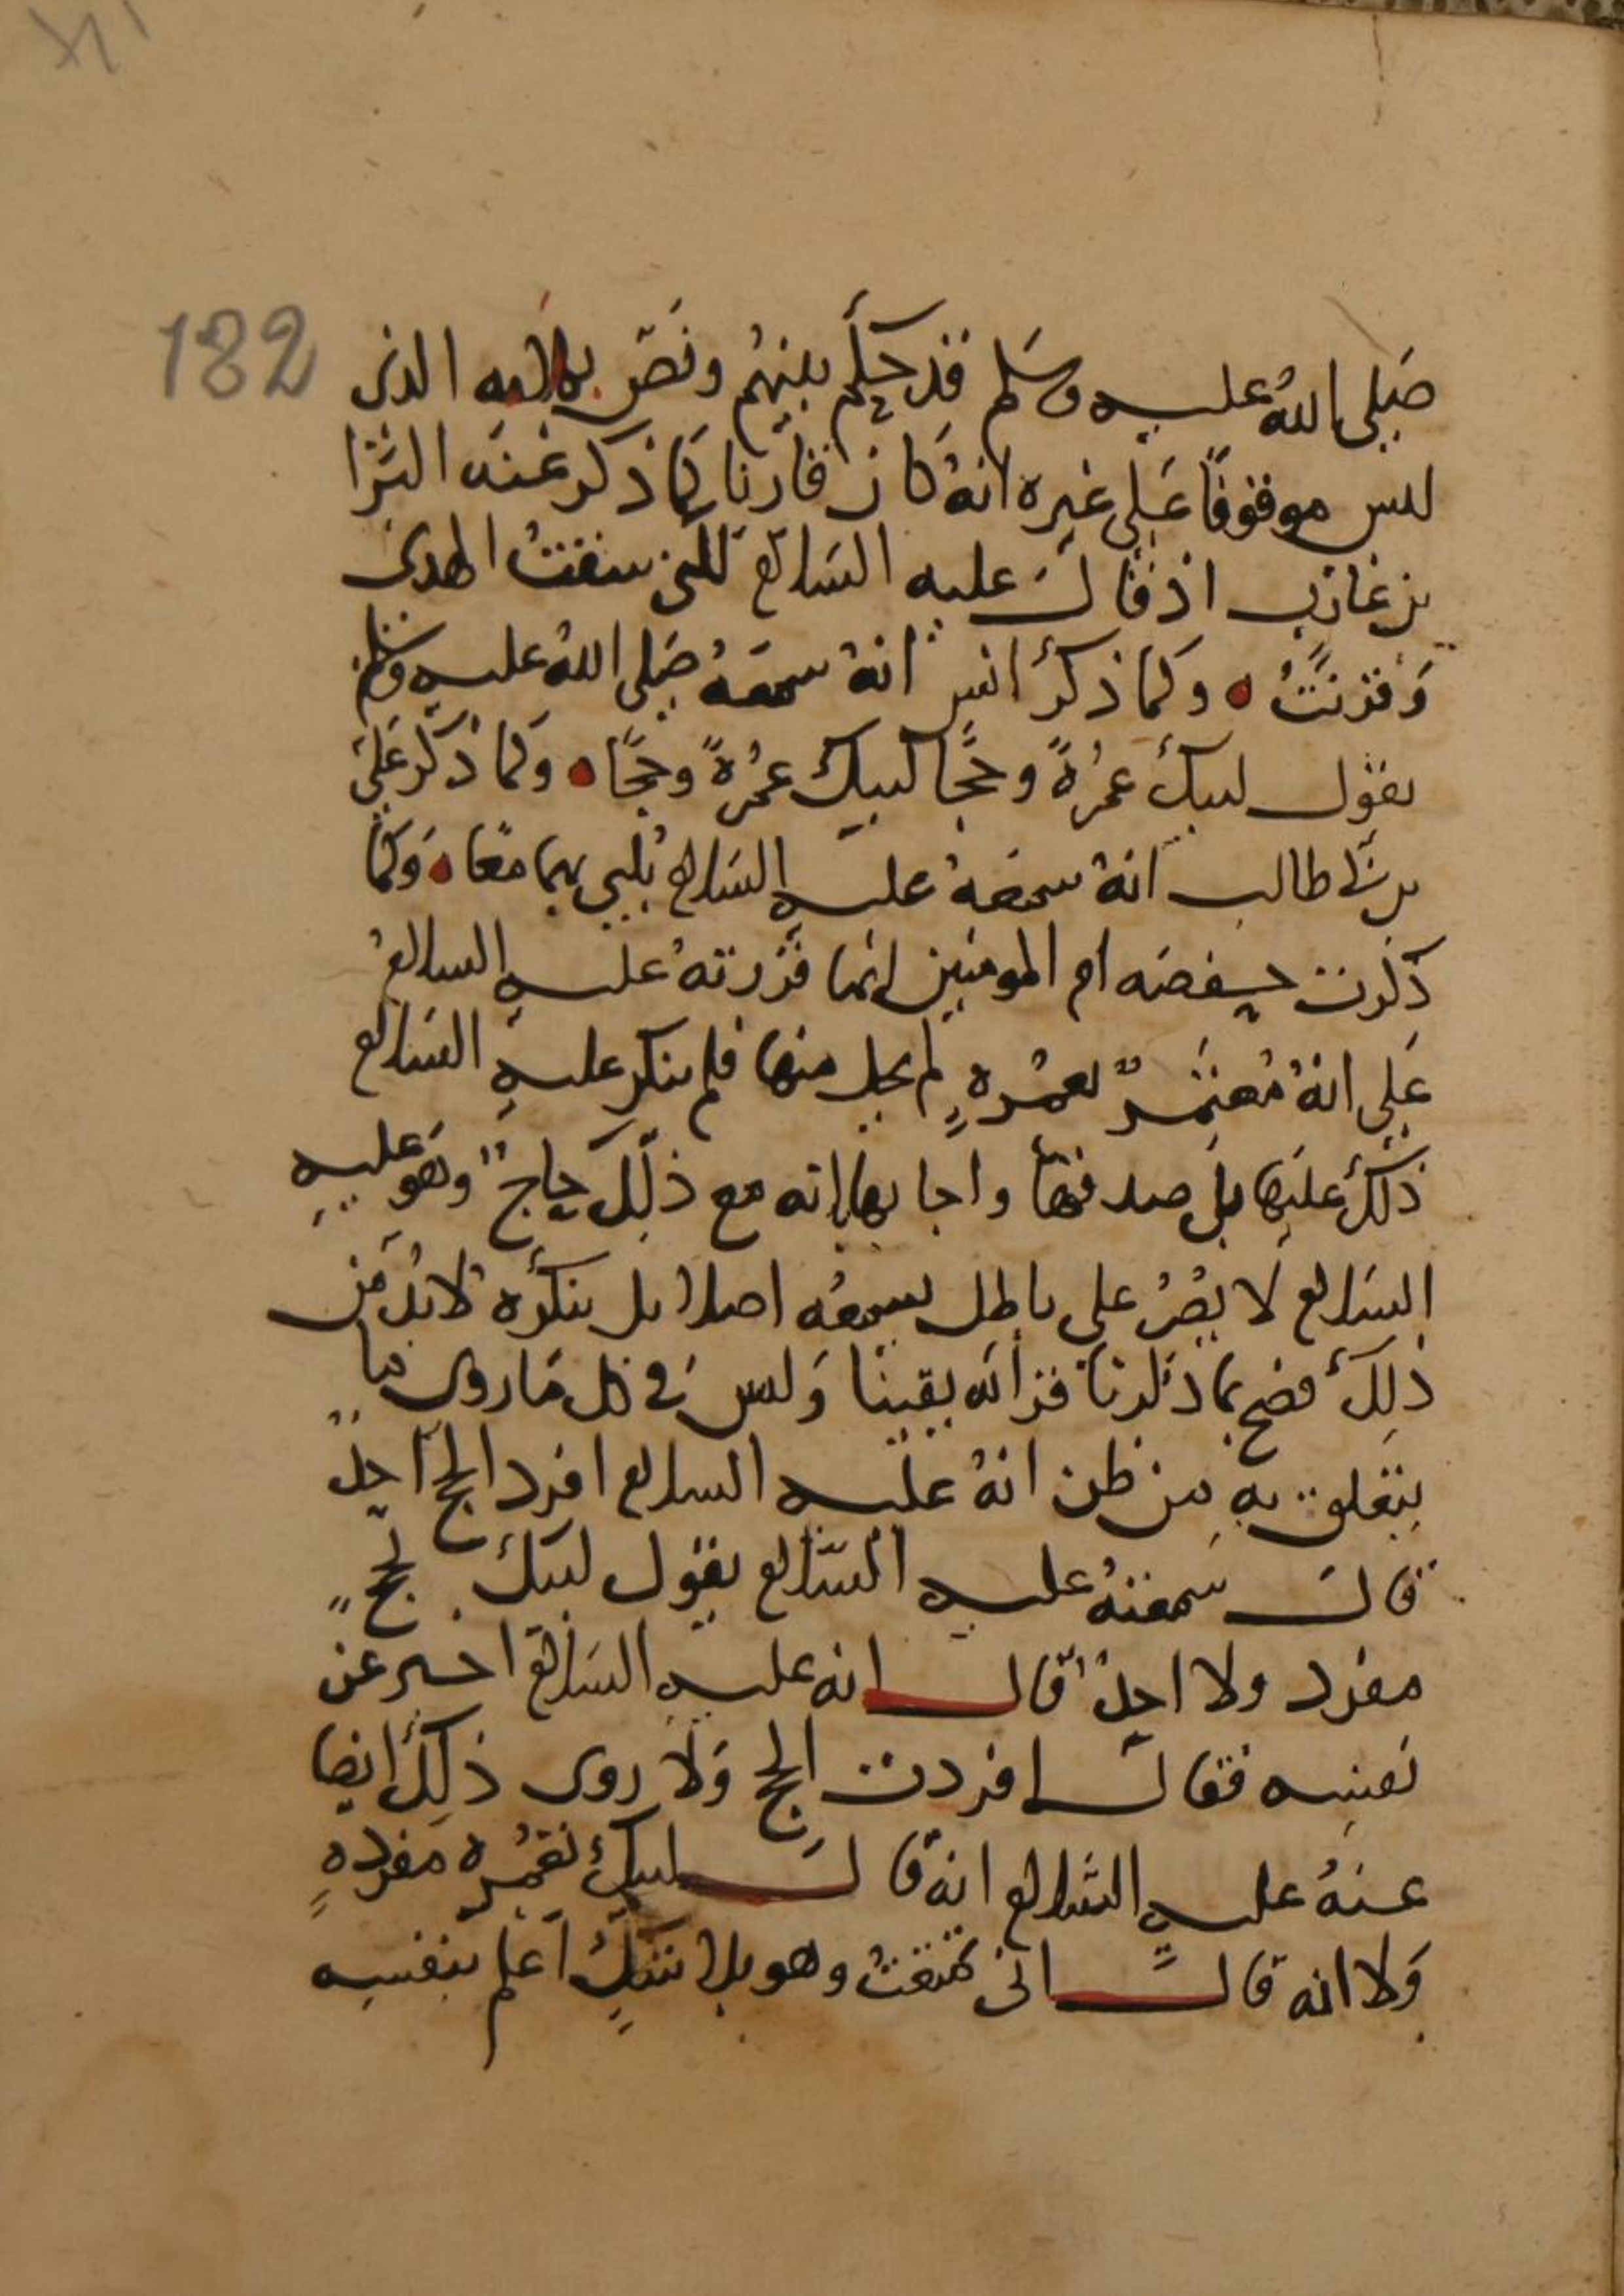 182
صَلى اللهُ عليه وسَلم قد حكَم بينهُم ونَصّ بكلامه الذى
ليس موقوفًا عَلى غيره انهُ كان قارنا كما ذكر عَنه البَرَا
بن عَازب اذ قال عليه السَلام لكنى سقتُ الهدى
وَقرنتُ ٥ وكما ذكر انس انهُ سمعَهُ صَلى اللهُ عليه وسلم
يقول لبيك عمْرةً وحجًّا لبيك عمْرةً وحجًّا ٥ وكما ذكر عَلى
بن ابى طالب انهُ سمعَهُ عليه السَلام يُلبى بهما معًا ٥ وَكما
ذكرت حفصَه ام المومنين انها قررتهُ عليه السلام
عَلى انهُ مُعتَمرٌ بعمْرهٍ لم يحل منها فلم ينكر عليهِ السَلام
ذلك عليها بل صدقها واجابها انه مع ذلك حاجٌ وهو عليه
السَلام لا يُقرُ على باطل يسمعُه اصلا بل ينكرُه لابُد مَن
ذلِكَ فصح بما ذكرنَا قرانه يقينا وَليس فى كل مَا روى ما
يتعلق به مِن ظن انهُ عليه السلام افرد الحج احدٌ
قال سَمعتهُ عليه السَلام يقول لبيك بحجٍ
مفرد ولا احدٌ قال انه عليه السَلام اخبر عن
نفسِه فقال افردت الحج وَلا روى ذلِكَ ايضا
عنهُ عليه السَلام انهُ قال لبيك بعمْره مفردهٍ
وَلا انه قال انى تمتعتُ وهو بلا شكٍ اعلم بنفسِه